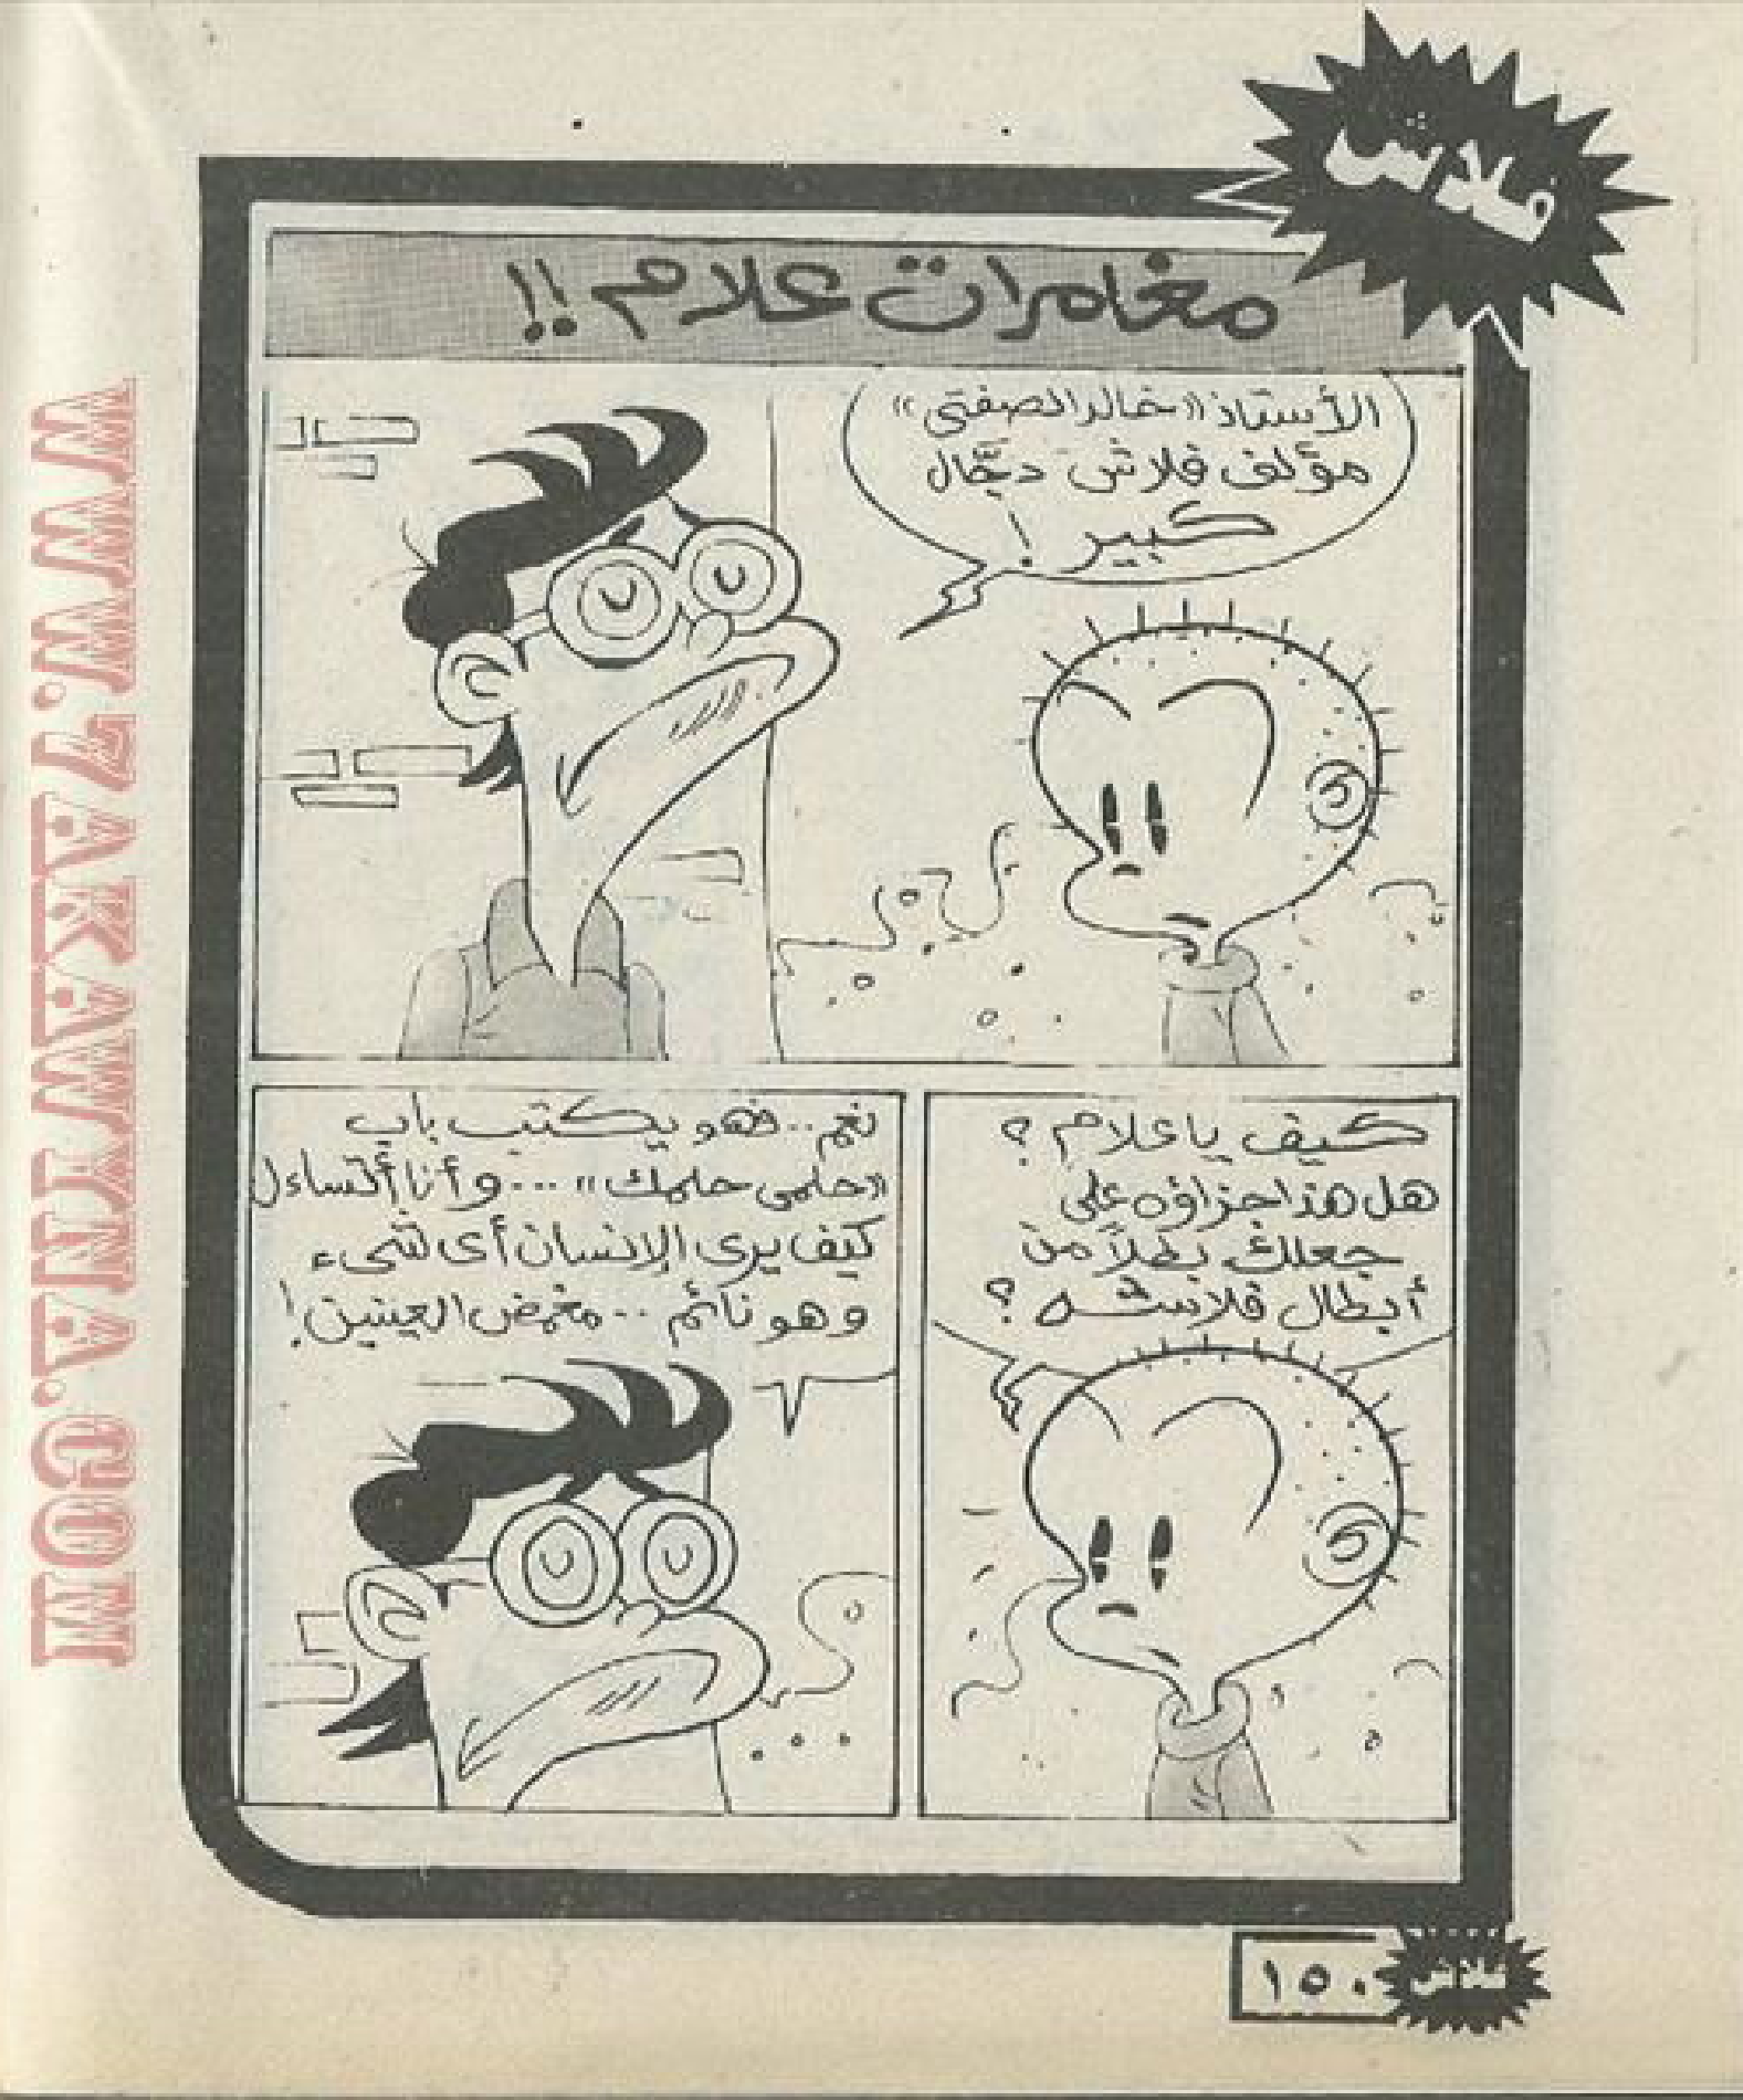 فلاش
مغامرات علام !!
الأستاذ «خالد الصفتى»
مؤلف فلاش دجَّال
كبير !
كيف يا علام ؟
هل هذا جزاؤه على
جعلك بطلاً من
أبطال فلاشه ؟
نعم .. فهو يكتب باب
«حلمى حلمك» ... وأنا أتساءل
كيف يرى الإنسان أى شىء
وهو نائم .. مغمض العينين !
١٥٠
فلاش
WWW.7AKAWITNA.COM